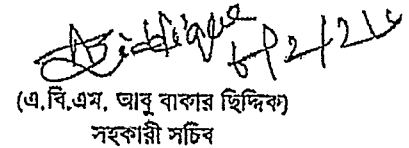 (এ.বি.এম. আবু বাকার ছিদ্দিক)
সহকারী সচিব